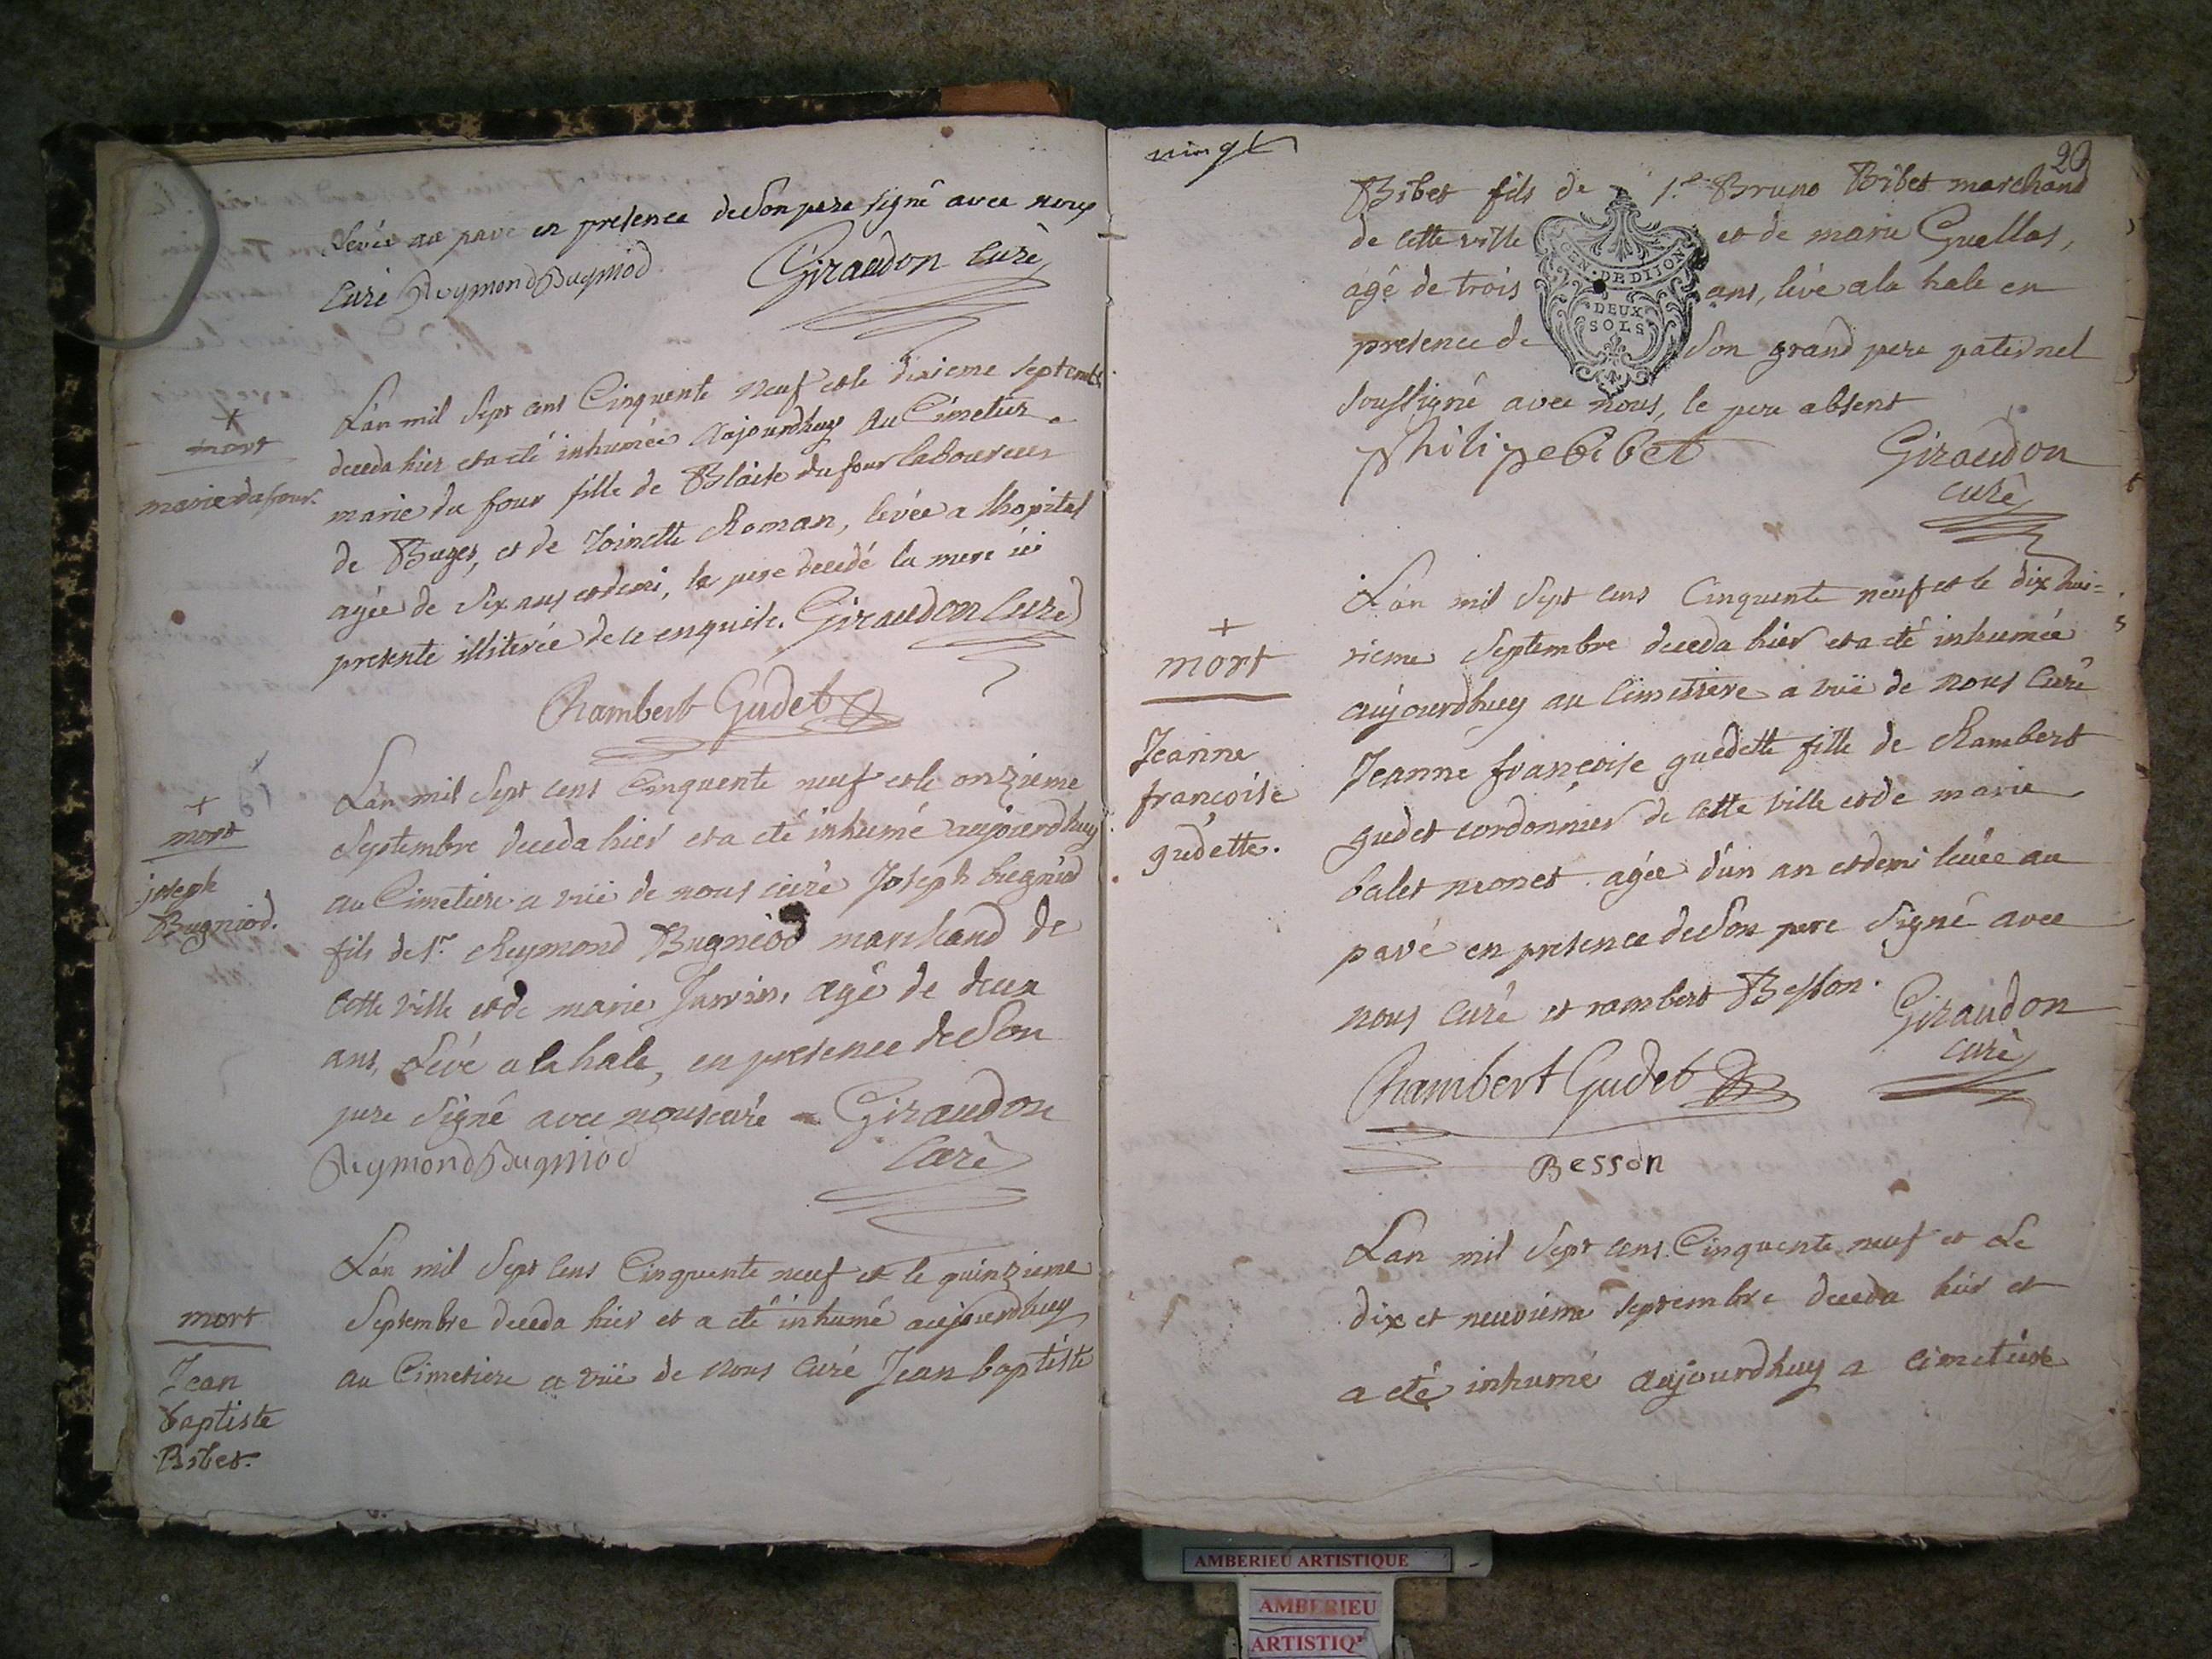 Levée au pavé en presence de Son pere signé avec nous
Curé Reymond Bugniod Giraudon Curé
+
mort
marie dufour.
L'an mil Sept cens Cinquente neuf et le dixieme septemb.
deceda hier et a eté inhumée aujourdhuy au Cimetiere
marie du four fille de Blaise du four laboureur
de Buges, et de Toinette Roman, levée a lhopital
agée de Six ans et demi, le pere decedé la mere ici
presente illiterée de ce enquise. Giraudon Curé
Rambert Gudet
+
mort
joseph
Bugniod.
L'an mil Sept cens Cinquente neuf et le onzieme
Septembre deceda hier et a eté inhumé aujourdhuy
au Cimetiere a vüe de nous curé Joseph bugniod
fils de Sr. Reymond Bugniod marchand de
cette ville et de marie agé de deux
ans, Levé a la hale, en presence de Son
pere Signé avec nous curé Giraudon
Reymond Bugniod Curé
mort
Jean
baptiste
Bibet.
L'an mil Sept cens Cinquente neuf et le quinzieme
Septembre deceda hier et a eté inhumé aujourdhuy
au Cimetiere a vüe de nous Curé Jean baptiste
vingt
20
Bibet fils de Sr. Bruno Bibet marchand
de cette ville et de marie Guellas,
agé de trois ans, levé a la hale en
presence de Son grand pere paternel
Soussigné avec nous, le pere absent
GEN. DE DIJON
DEUX
SOLS
philipe bibet Giraudon
curé
+
mort
Jeanne
françoise
gudette.
L'an mil Sept cens Cinquente neuf et le dix hui=
tieme Septembre deceda hier et a eté inhumée
aujourdhuy au Cimetiere a vüe de nous Curé
Jeanne françoise guedette fille de Rambert
gudet cordonnier de cette ville et de marie
balet monet agée d'un an et demi levée au
pavé en presence de Son pere Signé avec
nous Curé et rambert Besson. Giraudon
curé
Rambert Gudet
Besson
L'an mil Sept cens Cinquente neuf et Le
dix et neuvieme septembre deceda hier et
a eté inhumé aujourdhuy a cimetiere
AMBERIEU ARTISTIQUE
AMBERIEU
ARTISTIQ